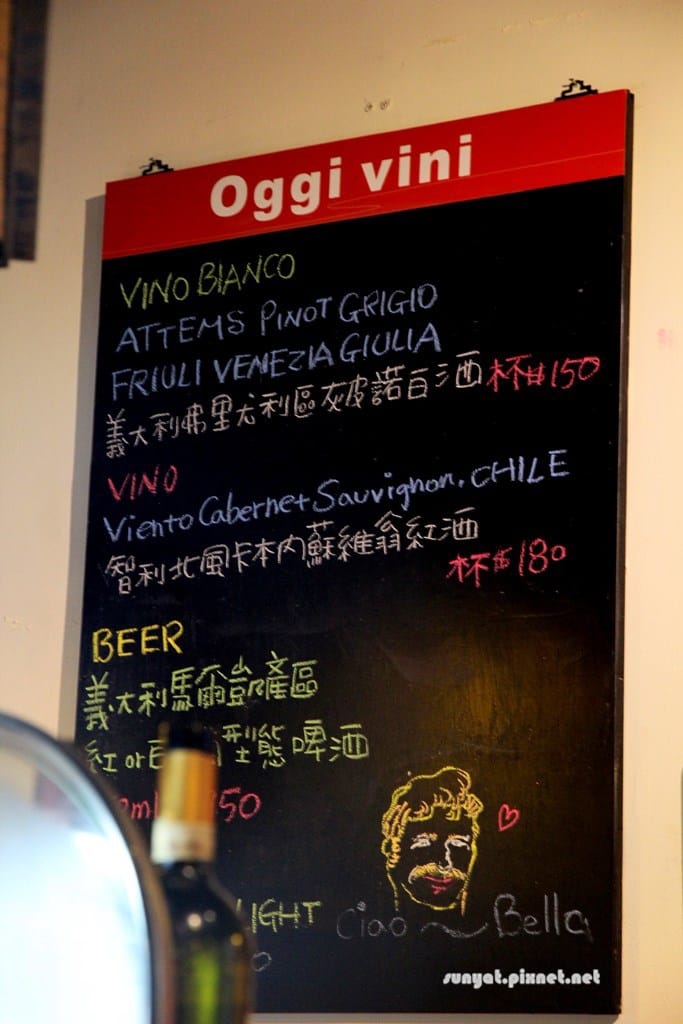 Oggi vini
VINO BIANCO
ATTEMS PINOT GRIGIO
FRIULI VENEZIA GIULIA
義大利弗里尤利區灰皮諾白酒 杯#150
VINO
Viento Cabernet Sauvignon. CHILE
智利北風卡本內蘇維翁紅酒
杯$180
BEER
義大利馬爾凱產區
紅 or 型態啤酒
50
LIGHT
Ciao ~ Bella
sunyat.pixnet.net